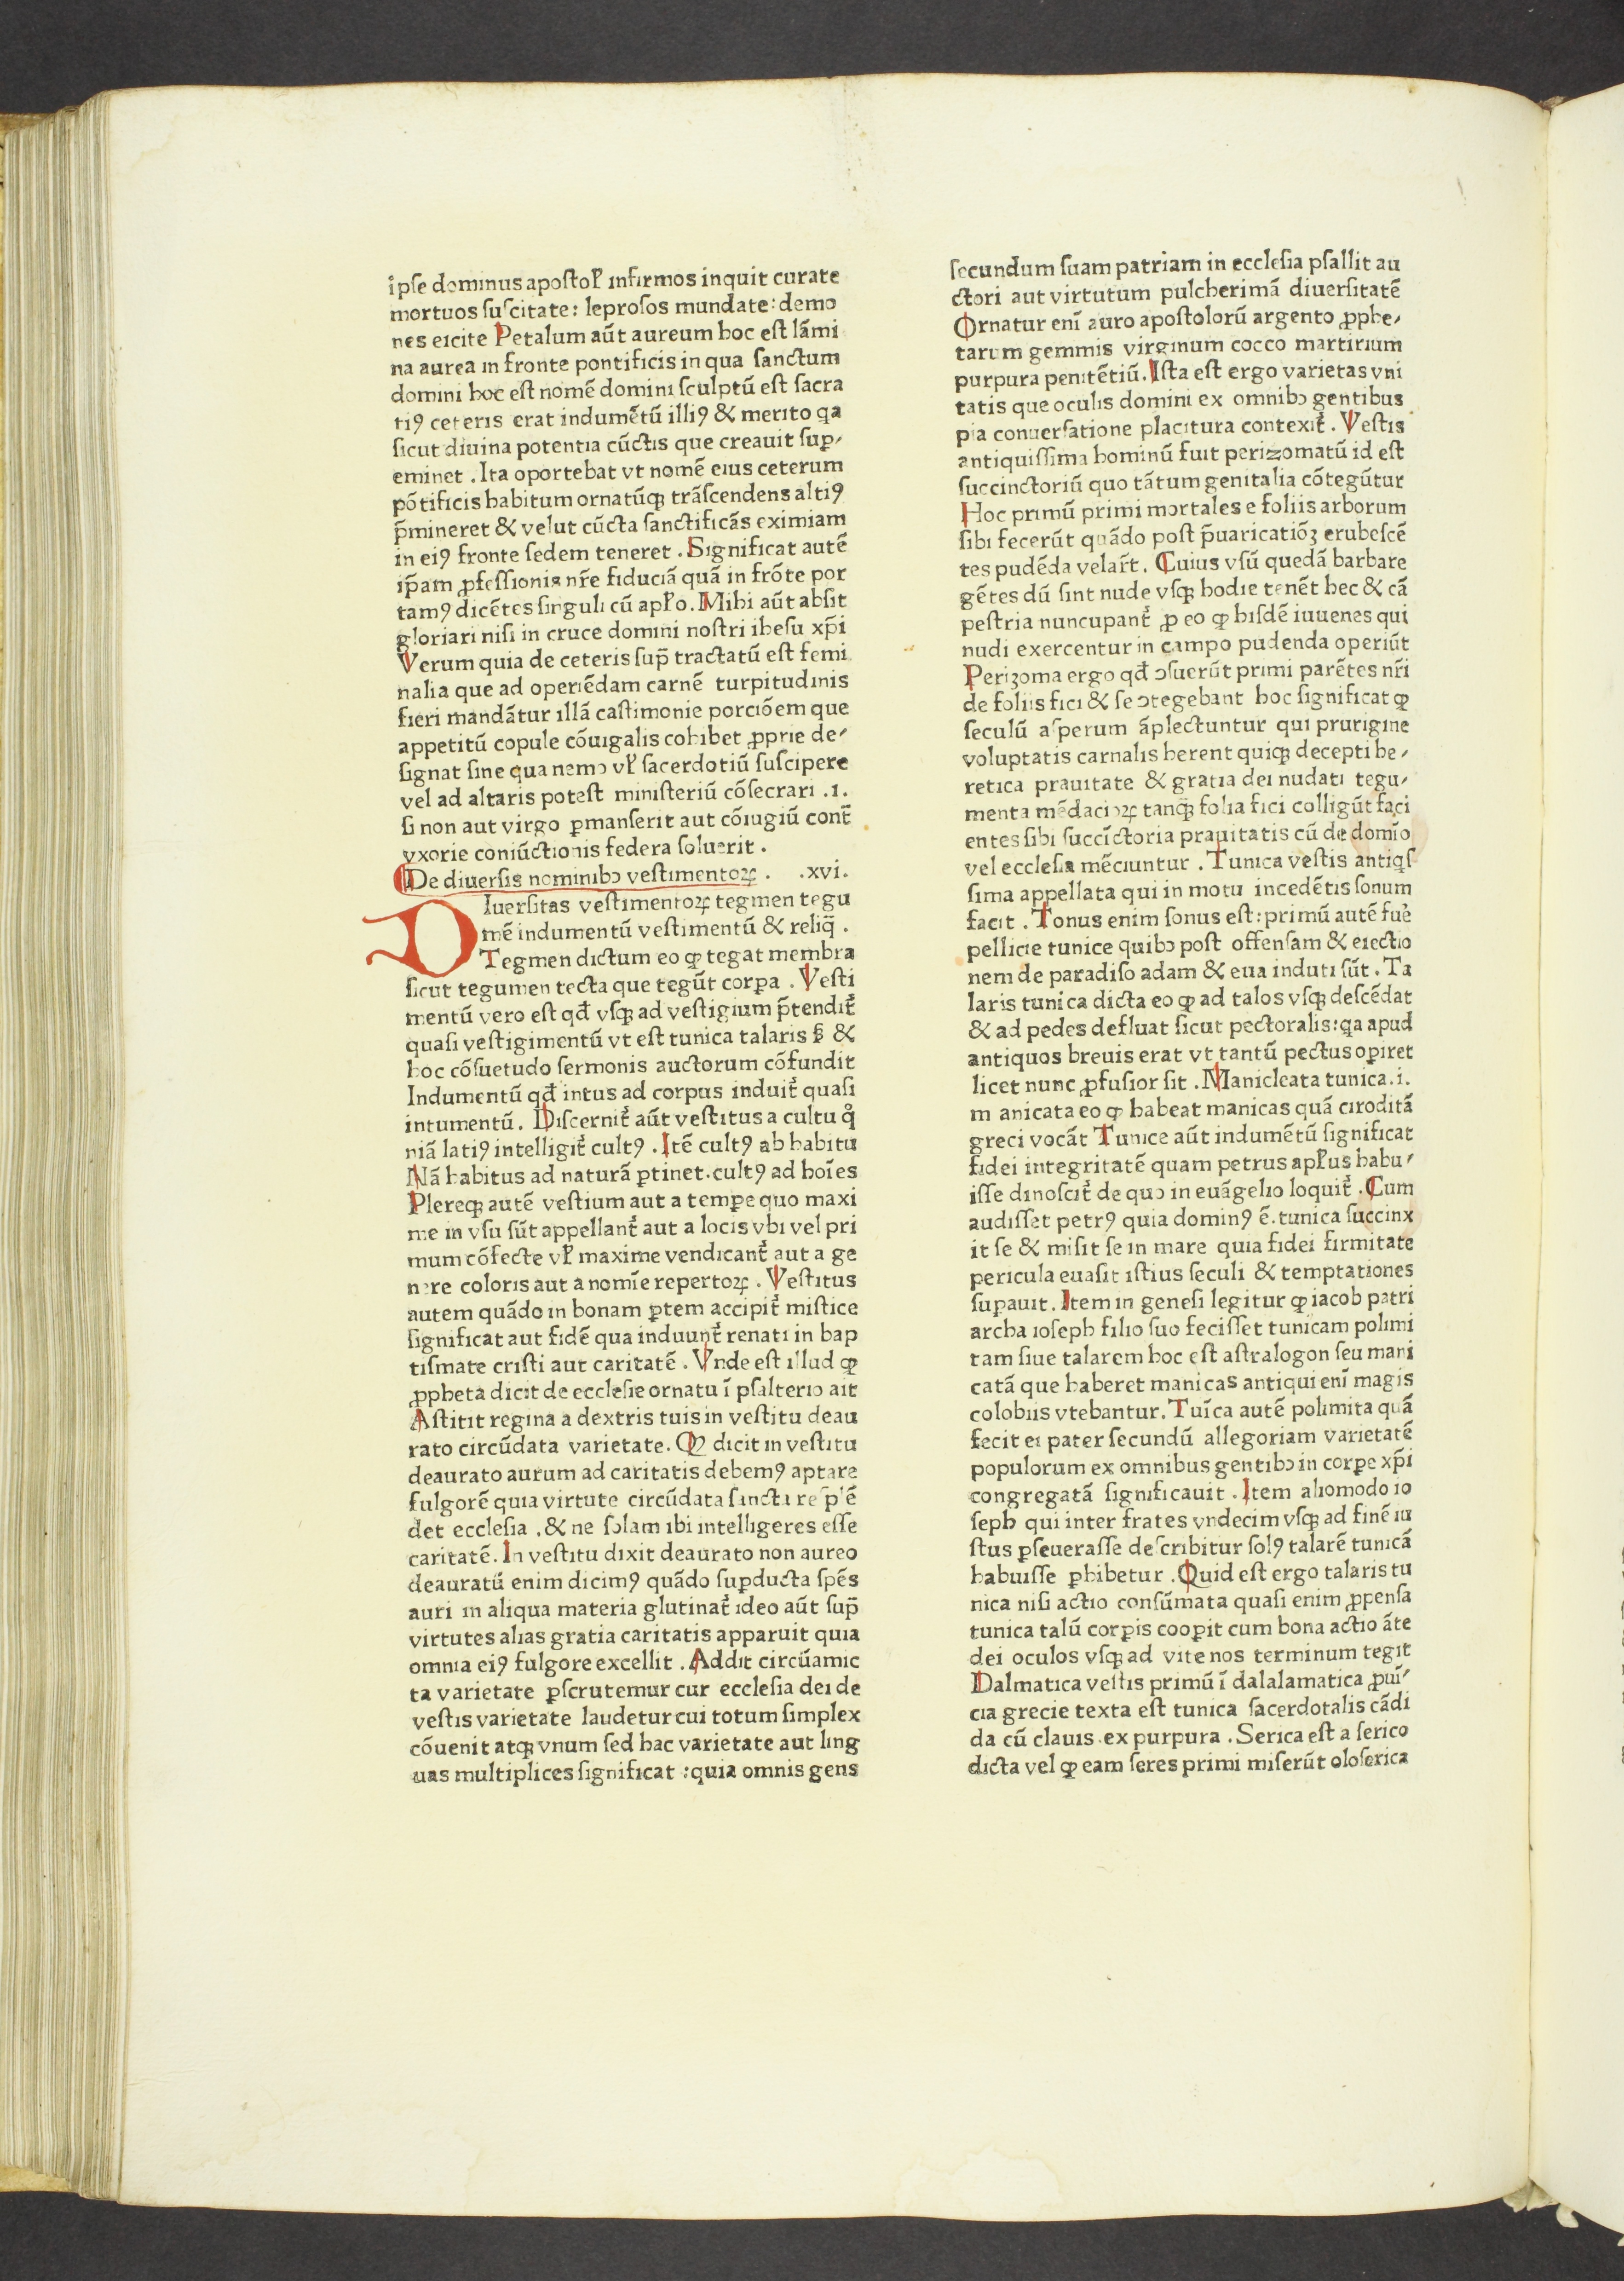 ipse dominus apostoł infirmos inquit curate
mortuos suscitate: leprosos mundate: demo
nes eicite Petalum aūt aureum hoc est lāmi
na aurea in fronte pontificis in qua sanctum
domini hoc est nomē domini sculptū est sacra
tiꝰ ceteris erat indumētū illiꝰ & merito qa
sicut diuina potentia cūctis que creauit suꝑ⸗
eminet . Ita oportebat vt nomē eius ceterum
pōtificis habitum ornatūqꝫ trāscendens altiꝰ
p̄mineret & velut cūcta sanctificās eximiam
in eiꝰ fronte sedem teneret . Significat autē
ip̄am ꝓfessionis nr̄e fiduciā quā in frōte por
tamꝰ dicētes singuli cū apło . Mihi aūt absit
gloriari nisi in cruce domini nostri ihesu xp̄i
Verum quia de ceteris sup̄ tractatū est femi
nalia que ad operiēdam carnē turpitudinis
fieri mandātur illā castimonie porciōem que
appetitū copule cōuigalis cohibet ꝓprie de⸗
signat sine qua nemo vł sacerdotiū suscipere
vel ad altaris potest ministeriū cōsecrari .1.
si non aut virgo ꝑmanserit aut cōiugiū cont̄
vxorie coniūctionis federa soluerit .
De diuersis nominibꝫ vestimentoꝝ . .xvi.
DIuersitas vestimentoꝝ tegmen tegu
mē indumentū vestimentū & reliq̄ .
Tegmen dictum eo ꝙ tegat membra
sicut tegumen tecta que tegūt corꝑa . Vesti
mentū vero est qđ vsqꝫ ad vestigium p̄tendit᷑
quasi vestigimentū vt est tunica talaris ꝭ &
hoc cōsuetudo sermonis auctorum cōfundit
Indumentū qđ intus ad corpus induit᷑ quasi
intumentū . Discernit᷑ aūt vestitus a cultu qͦ
niā latiꝰ intelligit᷑ cultꝰ . Itē cultꝰ ab habitu
Nā habitus ad naturā ꝑtinet . cultꝰ ad hoīes
Plereqꝫ autē vestium aut a temꝑe quo maxi
me in vsu sūt appellant᷑ aut a locis vbi vel pri
mum cōfecte vł maxime vendicant᷑ aut a ge
nere coloris aut a nomīe repertoꝝ . Vestitus
autem quādo in bonam ꝑtem accipit᷑ mistice
significat aut fidē qua induunt᷑ renati in bap
tismate cristi aut caritatē . Vnde est illud ꝙ
ꝓpheta dicit de ecclesie ornatu ī psalterio ait
Astitit regina a dextris tuis in vestitu deau
rato circūdata varietate . Ꝙ dicit in vestitu
deaurato aurum ad caritatis debemꝰ aptare
fulgorē quia virtute circūdata sancta resplē
det ecclesia . & ne solam ibi intelligeres esse
caritatē . In vestitu dixit deaurato non aureo
deauratū enim dicimꝰ quādo suꝑducta spēs
auri in aliqua materia glutinat᷑ ideo aūt sup̄
virtutes alias gratia caritatis apparuit quia
omnia eiꝰ fulgore excellit . Addit circūamic
ta varietate ꝑscrutemur cur ecclesia dei de
vestis varietate laudetur cui totum simplex
cōuenit atqꝫ vnum sed hac varietate aut ling
uas multiplices significat : quia omnis gens
secundum suam patriam in ecclesia psallit au
ctori aut virtutum pulcherimā diuersitatē
Ornatur enī auro apostolorū argento ꝓphe⸗
tarum gemmis virginum cocco martirium
purpura penitētiū . Ista est ergo varietas vni
tatis que oculis domini ex omnibꝫ gentibus
pia conuersatione placitura contexit᷑ . Vestis
antiquissima hominū fuit perizomatū id est
succinctoriū quo tātum genitalia cōtegūtur
Hoc primū primi mortales e foliis arborum
sibi fecerūt quādo post p̄uaricatiōꝫ erubescē
tes pudēda velar̄t . Cuius vsū quedā barbare
gētes dū sint nude vsqꝫ hodie tenēt hec & cā
pestria nuncupant᷑ ꝓ eo ꝙ hisdē iuuenes qui
nudi exercentur in campo pudenda operiūt
Perizoma ergo qđ ꝯsuerūt primi parētes nr̄i
de foliis fici & se ꝯtegebant hoc significat ꝙ
seculū asperum āplectuntur qui prurigine
voluptatis carnalis herent quiqꝫ decepti he⸗
retica prauitate & gratia dei nudati tegu⸗
menta mēdacioꝝ tanqꝫ folia fici colligūt faci
entes sibi succīctoria prauitatis cū de domīo
vel ecclesia mēciuntur . Tunica vestis antiqs
sima appellata qui in motu incedētis sonum
facit . Tonus enim sonus est : primū autē fue᷑
pellicie tunice quibꝫ post offensam & eiectio
nem de paradiso adam & eua induti sūt . Ta
laris tunica dicta eo ꝙ ad talos vsqꝫ descēdat
& ad pedes defluat sicut pectoralis : qa apud
antiquos breuis erat vt tantū pectus oꝑiret
licet nunc ꝓfusior sit . Manicleata tunica .i.
m anicata eo ꝙ habeat manicas quā ciroditā
greci vocāt Tunice aūt indumētū significat
fidei integritatē quam petrus apłus habu⸗
isse dinoscit᷑ de quo in euāgelio loquit᷑ . Cum
audisset petrꝰ quia dominꝰ ē . tunica succinx
it se & misit se in mare quia fidei firmitate
pericula euasit istius seculi & temptationes
suꝑauit . Item in genesi legitur ꝙ iacob patri
archa ioseph filio suo fecisset tunicam polimi
tam siue talarem hoc est astralogon seu mani
catā que haberet manicas antiqui enī magis
colobiis vtebantur . Tuīca autē polimita quā
fecit ei pater secundū allegoriam varietatē
populorum ex omnibus gentibꝫ in corꝑe xp̄i
congregatā significauit . Item aliomodo io
seph qui inter frates vndecim vsqꝫ ad finē iu
stus ꝑseuerasse describitur solꝰ talarē tunicā
habuisse ꝑhibetur . Quid est ergo talaris tu
nica nisi actio consūmata quasi enim ꝓpensa
tunica talū corꝑis cooꝑit cum bona actio āte
dei oculos vsqꝫ ad vite nos terminum tegit
Dalmatica vestis primū ī dalalamatica ꝓuī⸗
cia grecie texta est tunica sacerdotalis cādi
da cū clauis ex purpura . Serica est a serico
dicta vel ꝙ eam seres primi miserūt oloserica